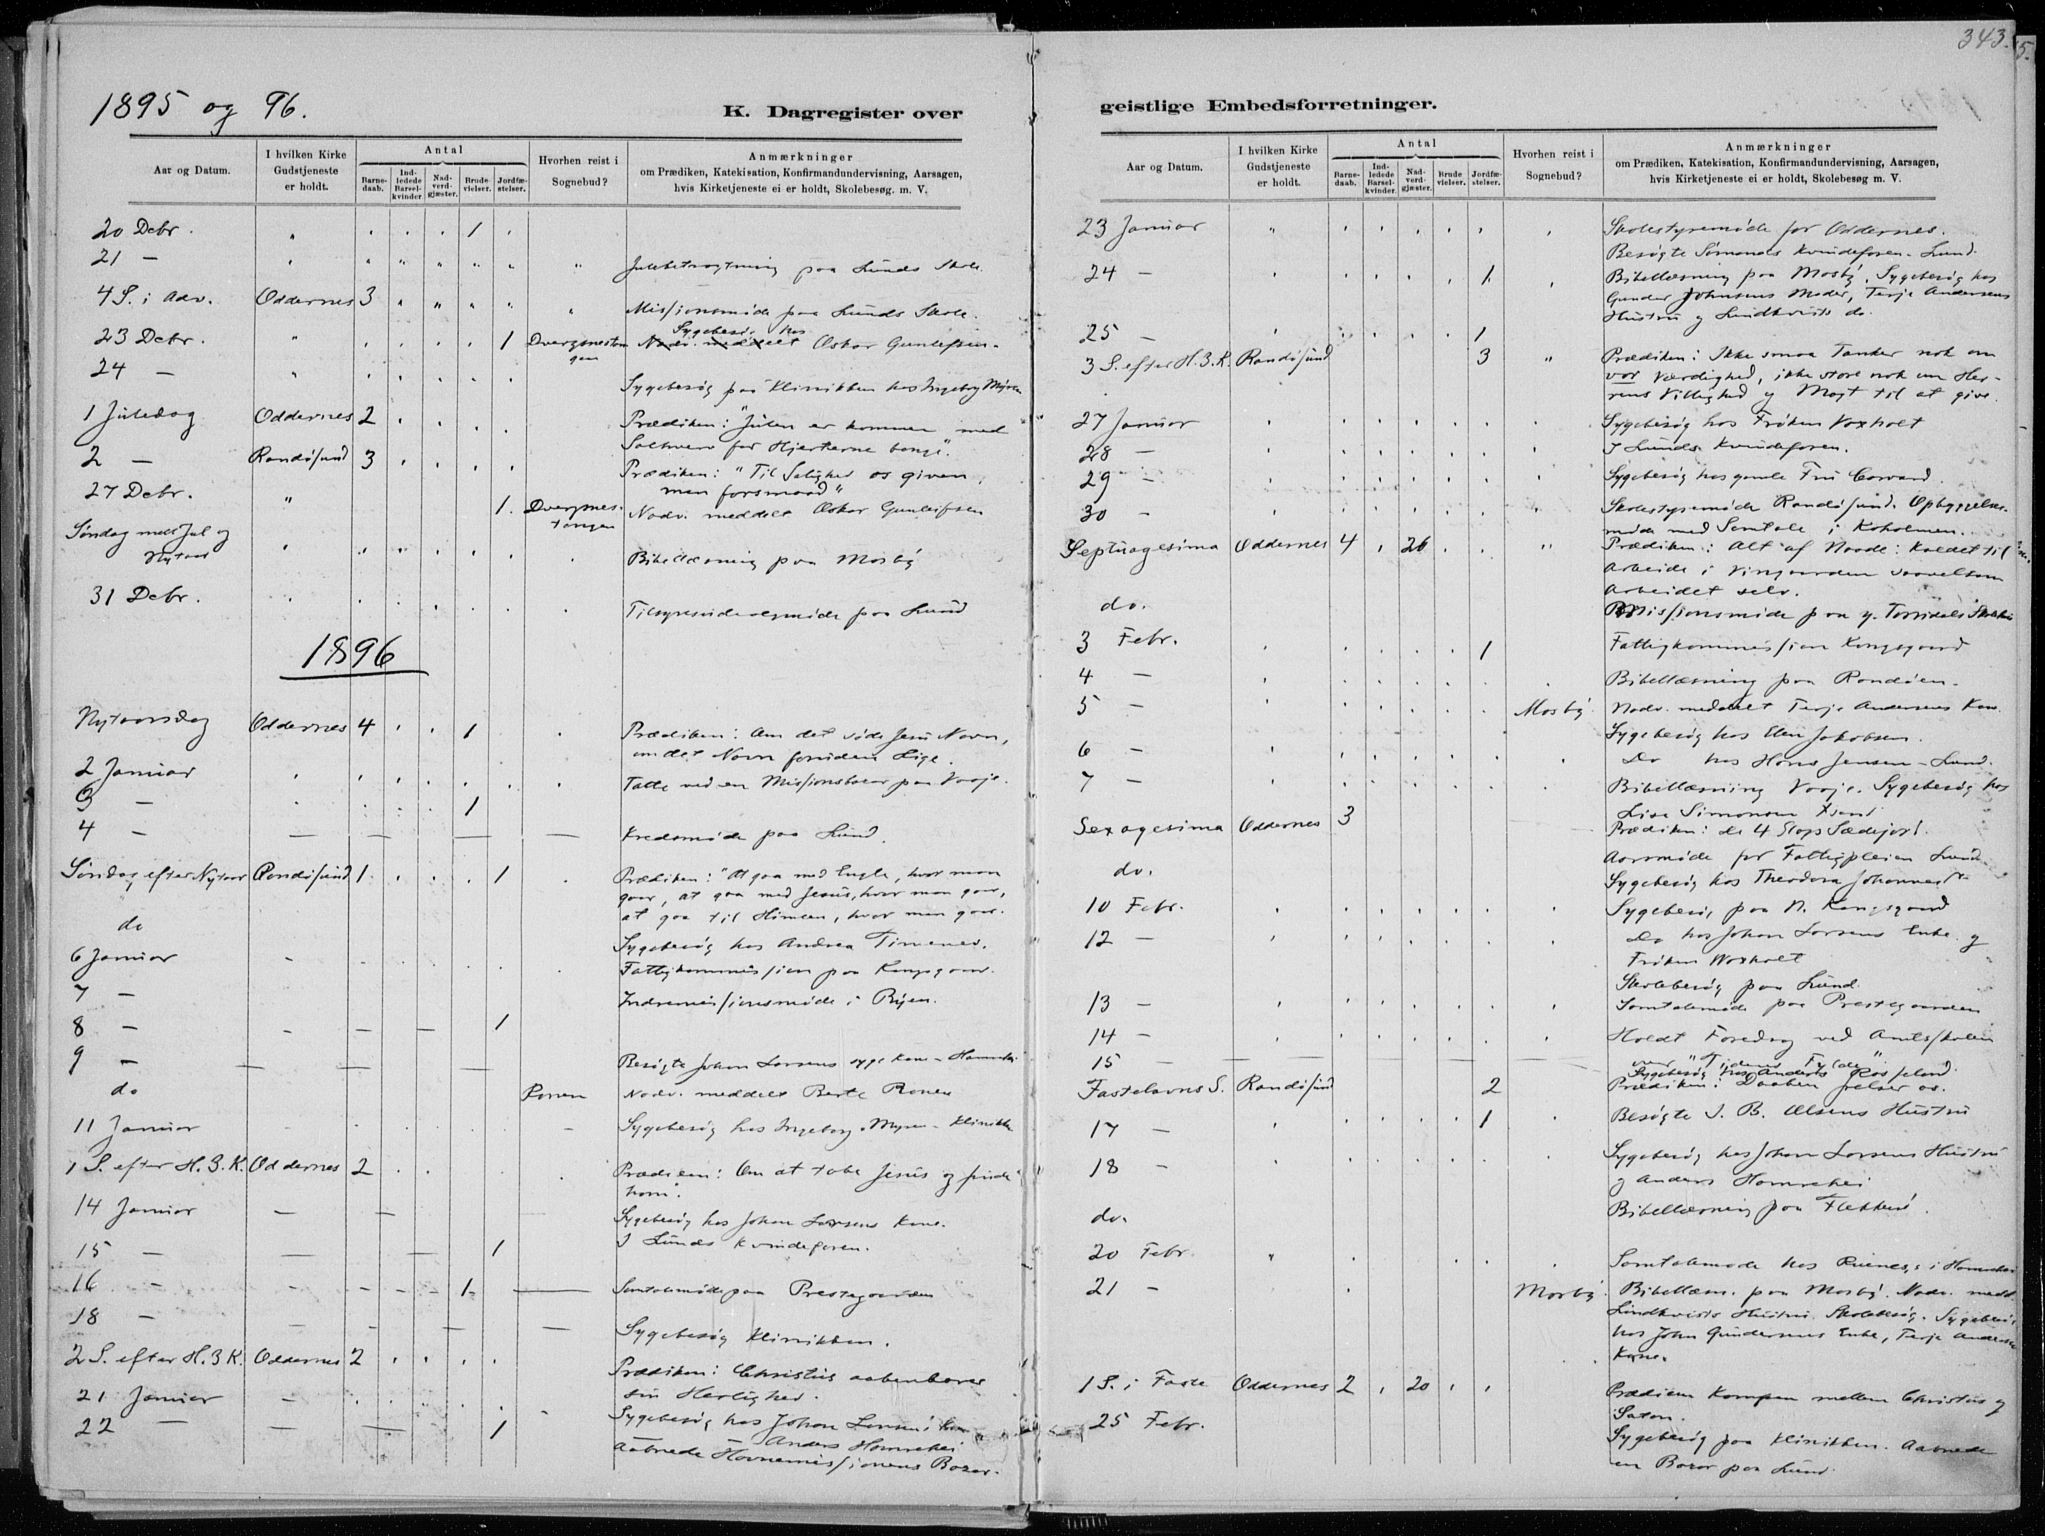 343.
1895 og 96.
K. Dagregister over
Aar og Datum.
I hvilken Kirke Gudstjeneste er holdt.
Antal
Barne-daab.
Ind-ledede Barsel-kvinder.
Nad-verd-gjæster.
Brude vielser.
Jordfæ-stelser.
Hvorhen reist i Sognebud?
Anmærkninger
om Prædiken, Katekisation, Konfirmandundervisning, Aarsagen,
hvis Kirketjeneste ei er holdt, Skolebesøg. m. V.
20 Debr. " 1
21 — " Julebetragtning paa Lunds Skole.
4 S. i Adv. Oddernes 3 Missjonsmøde paa Lunds Skole.
Sygebesøg hos
23 Debr. " 1 Dvergsnestangen Nadv. meddelt Oskar Gunleifsen
24 — " Sygebesøg paa Klinikken hos Ingeborg Myren
1 Juledag Oddernes 2 Prædiken: "Julen er kommen med
Solhverv for Hjerterne bange".
2 — Randøsund 3 Prædiken: "Til Salighed os given,
men forsmaad"
27 Debr. " 1. Dvergsnestangen Nadv. meddelt Oskar Gunleifsen
Søndag mell. Jul og
Nytaar Bibellæsning paa Mosby
31 Debr. Tilsynsmøde paa Lund
1896
Nytaarsdag Oddernes 4 1 Prædiken: Om det søde Jesu Navn,
om det Navn foruden Lige.
2 Januar Talte ved en Missjonsbasar paa Vaaje.
3 — 1
4 — Kredsmøde paa Lund.
Søndag efter Nytaar Randøsund 1 1 Prædiken: "At gaa med Engle, hvor man
gaar, at gaa med Jesus, hvor man gaar,
at gaa til Himlen, hvor man gaar.
do Sygebesøg hos Andrea Timenes.
6 Januar Fattigkommissjon paa Kongsgaar.
7 — Indremissjonsmøde i Byen.
8 — 1
9 — Besøgte Johan Larsens syge Kone - Hamrehei.
do Ronen Nadv. meddelt Berte Ronen
11 Januar Sygebesøg hos Ingeborg Myren - Klinikken
1 S. efter H. 3 K. Oddernes 2 Prædiken: Om at tabe Jesus og finde
ham.
14 Januar Sygebesøg hos Johan Larsens Kone.
I Lunds Kvindeforen.
15 — 1
16 — 1 Samtalemøde paa Prestegaarden
18 — Sygebesøg Klinikken.
2 S. efter H. 3 K. Oddernes 2 Prædiken: Christus aabenbarer
sin Herlighed.
21 Januar Sygebesøg hos Johan Larsens Kone
Anders Hamrehei
22 — 1 Aabnede Havnemissjonens Bazar.
geistlige Embedsforretninger.
Aar og Datum.
I hvilken Kirke Gudstjeneste er holdt.
Antal
Barne-daab.
Ind-ledede Barsel-kvinder.
Nad-verd-gjæster.
Brude vielser.
Jordfæ-stelser.
Hvorhen reist i Sognebud?
Anmærkninger
om Prædiken, Katekisation, Konfirmandundervisning, Aarsagen,
hvis Kirketjeneste ei er holdt, Skolebesøg m. V.
23 Januar " Skolestyremøde for Oddernes.
Besøgte Sømands Kvindeforen - Lund.
24 — 1 Bibellæsning paa Mosby. Sygebesøg hos
Gunder Johnsens Moder, Terje Andersens
Hustru og Lindkvists do.
25 — 1
3 S. efter H. 3. K. Randøsund 3 " Prædiken: Ikke smaa Tanker nok om
vor Værdighed, ikke store nok om Her-
rens Villighed og Magt til at give.
27 Januar Sygebesøg hos Frøken Voxholt
28 — I Lunds Kvindeforen.
29 — Sygebesøg hos gamle Fru Corvard.
30 — Skolestyremøde Randøsund. Opbyggelses-
møde med Samtale i Koholmen.
Septuagesima Oddernes 4 26 " Prædiken: Alt af Naade: Kaldet til
Arbeide i Vingaarden saavelsom
Arbeidet selv.
do. Missjonsmøde paa y. Torridals Skole
3 Febr. 1 Fattigkommissjon Kongsgaard
4 — Bibellæsning paa Randøen.
5 — Mosby Nadv. meddelt Terje Andersens Kone.
Sygebesøg hos Elen Jakobsen.
6 — Do hos Hans Jensen - Lund.
7 — Bibellæsning Vaaje. Sygebesøg hos
Lise Simonsen
Sexagesima Oddernes 3 Prædiken: de 4 Slags Sædejord.
Aarsmøde for Fattigpleien Lund.
do. Sygebesøg hos Theodora Johannes
10 Febr. Sygebesøg paa N. Kongsgaard
12 — Do hos Johan Larsens Enke og
Frøken Woxholt
Skolebesøg paa Lund.
13 — Samtalemøde paa Prestegaarden
14 — Holdt Foredrag ved Amtsskolen
over "Tidens Fylde".
15 — Sygebesøg hos Anders Rosseland.
Fastelavns S. Randøsund 2 Prædiken: Daaben frelser os.
17 — 1 Besøgte J. B. Olsens Hustru
18 — Sygebesøg hos Johan Larsens Hustru
og Anders Hamrehei
do. Bibellæsning paa Flekkerø.
20 Febr. " Samtalemøde hos Ruenes i Hamrehei
21 — Mosby. Bibellæsn. paa Mosby. Nadv. medd.
Lindkvists Hustru. Skolebesøg. Sygebesøg
hos John Gundersens Enke, Terje Andersens
Kone.
1 S. i Faste Oddernes 2 20 Prædiken Kampen mellem Christus og
Satan.
25 Febr. Sygebesøg paa Klinikken. Aabnede
en Bazar paa Lund.